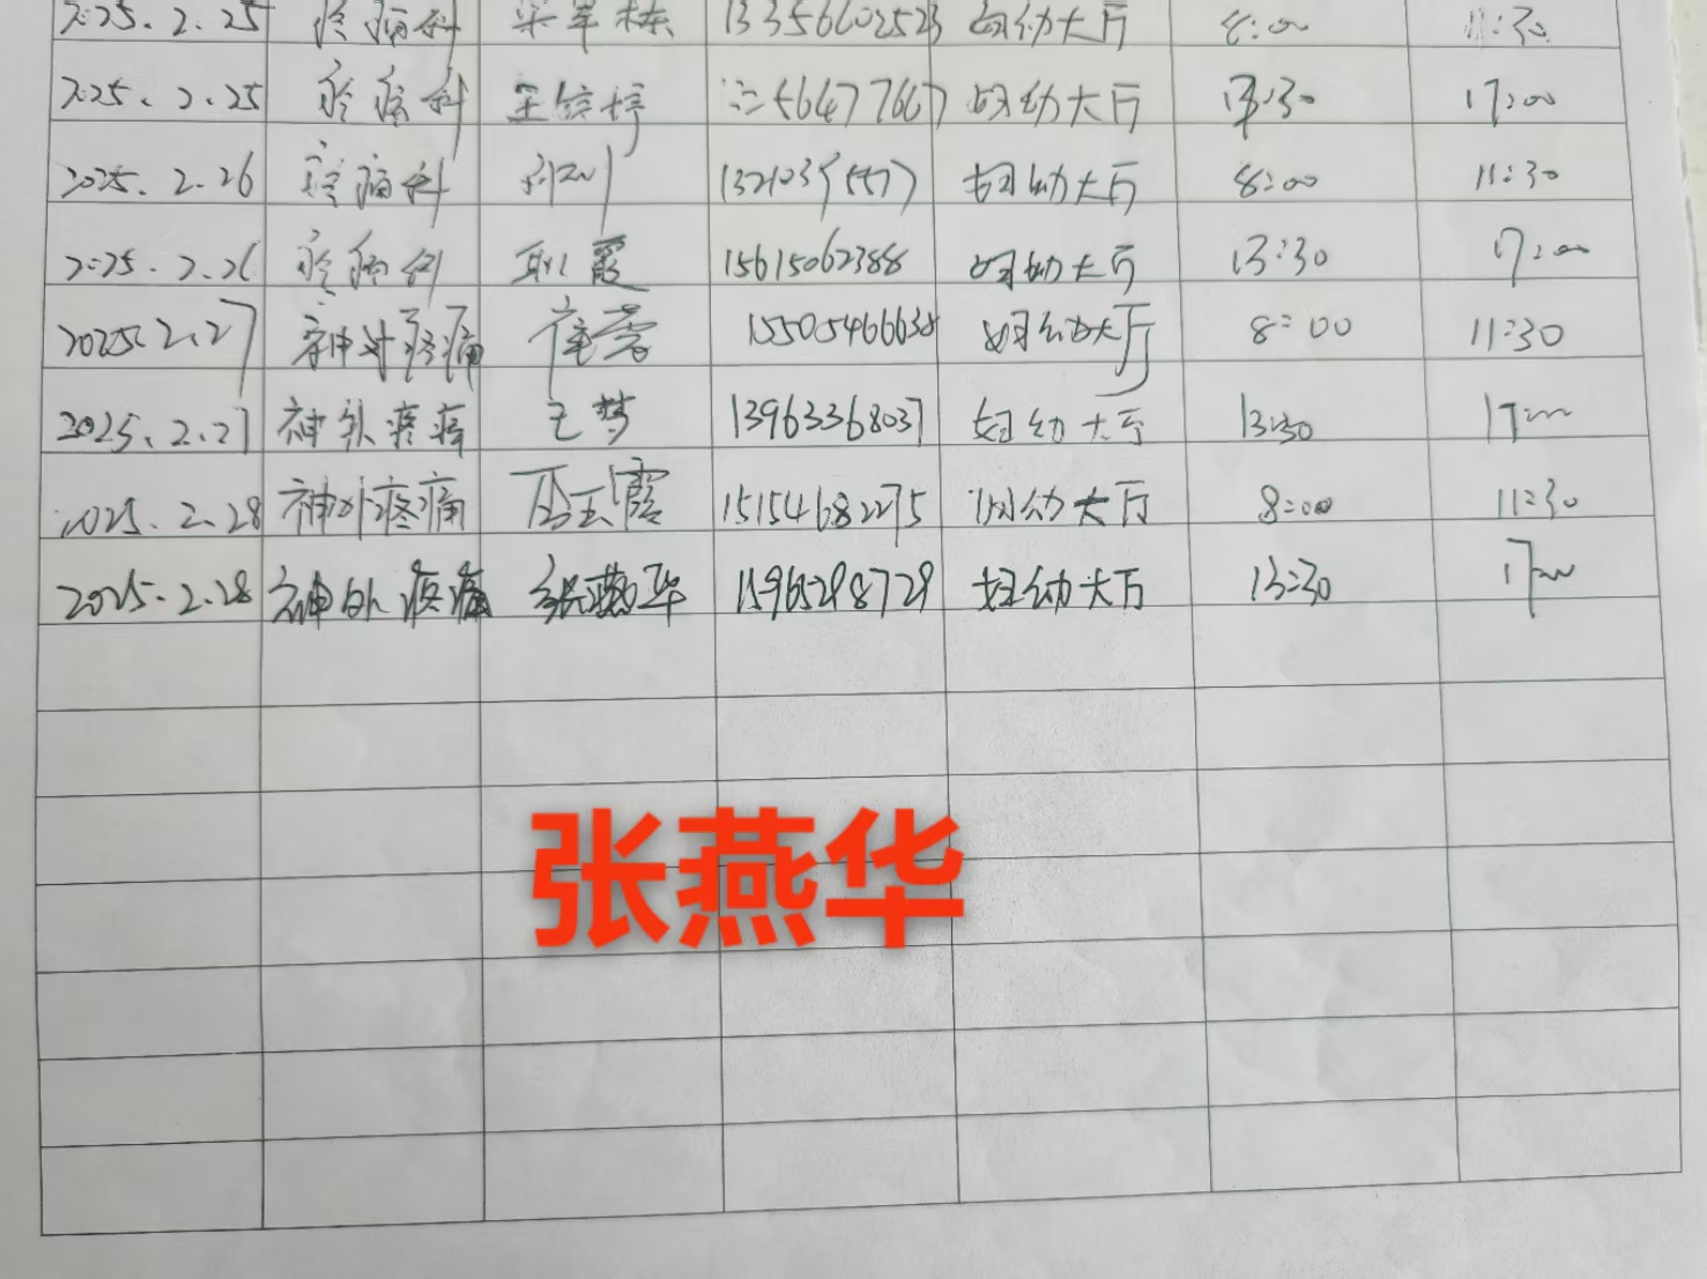 2025.2.25 疼痛科 13356602523 妇幼大厅 8:00 11:30
2025.2.25 疼痛科 妇幼大厅 13:30 17:00
2025.2.26 疼痛科 妇幼大厅 8:00 11:30
2025.2.26 疼痛科 耿霞 15615062388 妇幼大厅 13:30 17:00
2025.2.27 神外疼痛 崔蕾 15505466638 妇幼大厅 8:00 11:30
2025.2.27 神外疼痛 王梦 13963368037 妇幼大厅 13:30 17:00
2025.2.28 神外疼痛 15154682275 妇幼大厅 8:00 11:30
2025.2.28 神外疼痛 张燕华 15965298729 妇幼大厅 13:30 17:00
张燕华